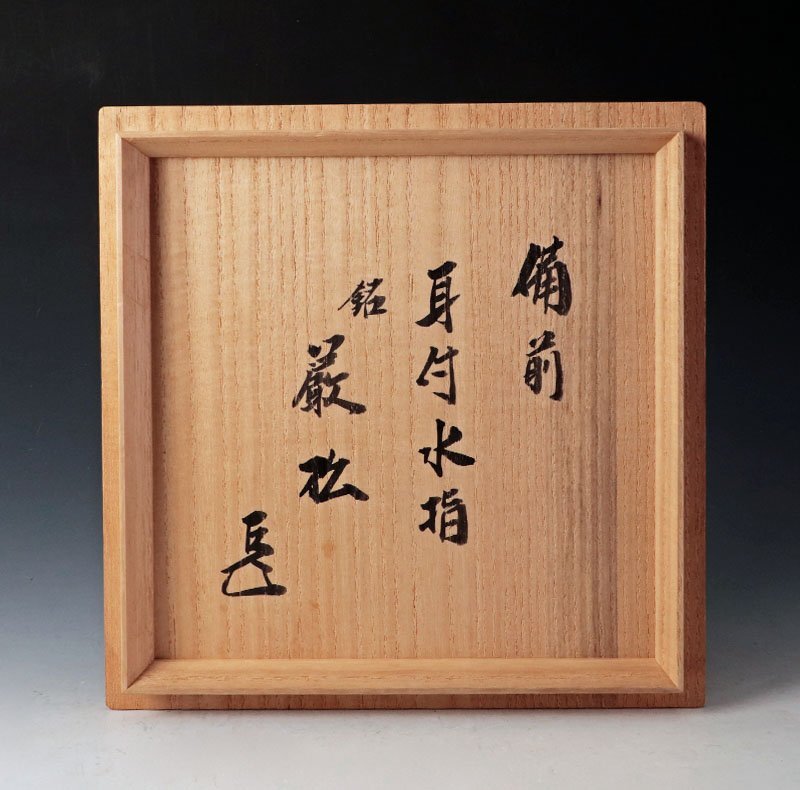 備前
耳付水指
銘
巌松